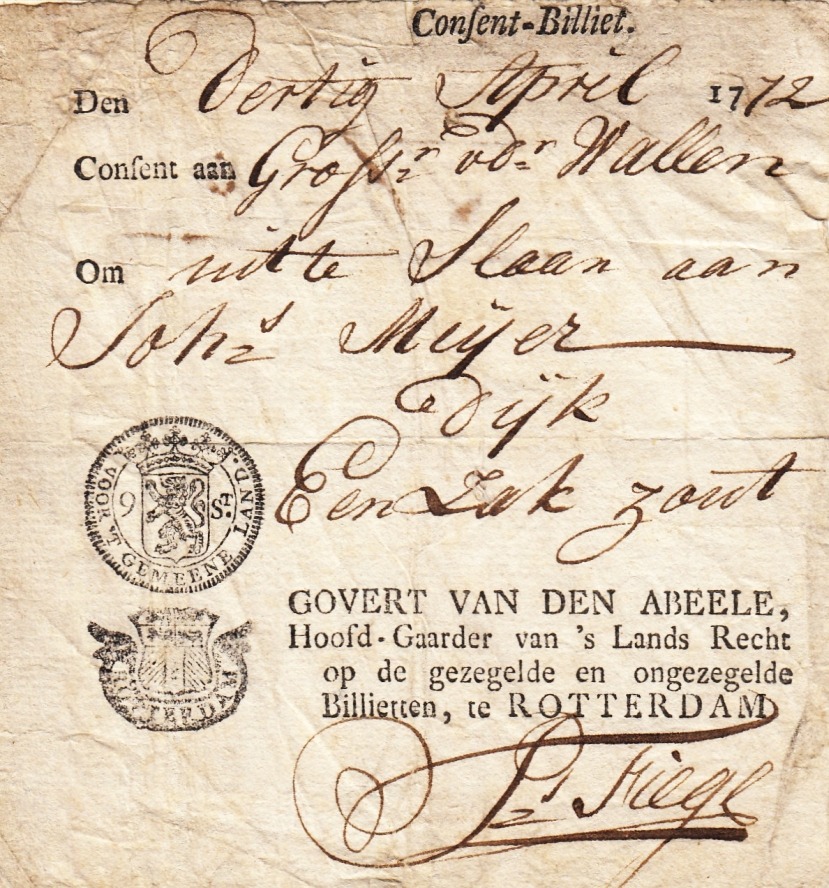 Conſent-Billiet.
Den Dertig April 1772
Conſent aan Groſsr. vdr. Wallen
Om uit te Slaan aan
Johs. Meijer
Dijk
Een Zak zout
VOOR 'T GEMEENE LAND.
9 St.
ROTTERDAM
GOVERT VAN DEN ABEELE,
Hoofd-Gaarder van 's Lands Recht
op de gezegelde en ongezegelde
Billietten, te ROTTERDAM
Ps. Fiege